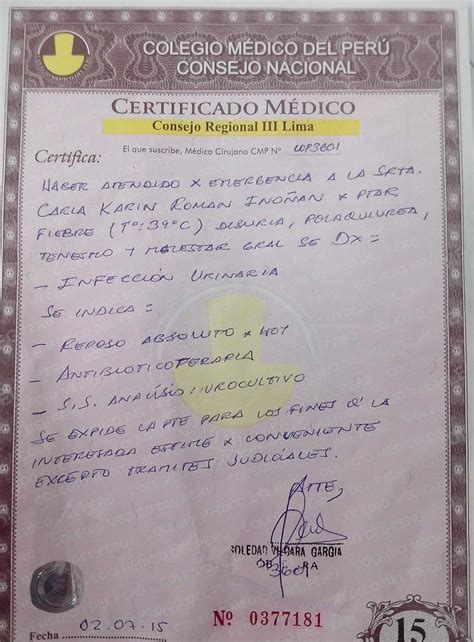 COLEGIO MÉDICO DEL PERÚ
CONSEJO NACIONAL
CERTIFICADO MÉDICO
Consejo Regional III Lima
Certifica: El que suscribe, Médico Cirujano CMP Nº
HABER ATENDIDO X EMERGENCIA A LA SRTA.
CARLA KARIN ROMAN INOÑAN X PTAR
FIEBRE (Tº: 39ºC) DISURIA, POLAQUIUREA,
TENESMO Y MALESTAR GRAL SE DX =
- INFECCIÓN URINARIA
SE INDICA =
- REPOSO ABSOLUTO X HOY
- ANTIBIOTICOTERAPIA
- S.S. ANALISIS: UROCULTIVO
SE EXPIDE LA PTE PARA LOS FINES Q' LA
INTERESADA ESTIME X CONVENIENTE
EXCEPTO TRAMITES JUDICIALES.
ATTE,
SOLEDAD GARCIA
Fecha 02.07.15
Nº 0377181
15